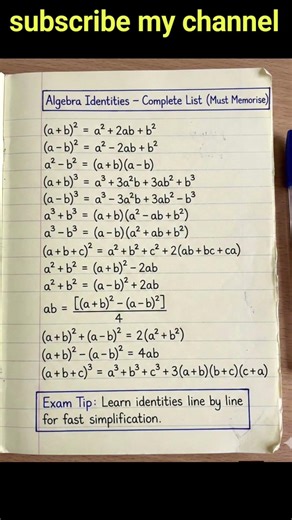 subscribe my channel
Algebra Identities – Complete List (Must Memorise)
(a+b)² = a² + 2ab + b²
(a-b)² = a² - 2ab + b²
a² - b² = (a+b)(a-b)
(a+b)³ = a³ + 3a²b + 3ab² + b³
(a-b)³ = a³ - 3a²b + 3ab² - b³
a³ + b³ = (a+b)(a² - ab + b²)
a³ - b³ = (a-b)(a² + ab + b²)
(a+b+c)² = a² + b² + c² + 2(ab+bc+ca)
a² + b² = (a+b)² - 2ab
a² + b² = (a-b)² + 2ab
ab = [(a+b)² - (a-b)²] / 4
(a+b)² + (a-b)² = 2(a² + b²)
(a+b)² - (a-b)² = 4ab
(a+b+c)³ = a³ + b³ + c³ + 3(a+b)(b+c)(c+a)
Exam Tip: Learn identities line by line
for fast simplification.